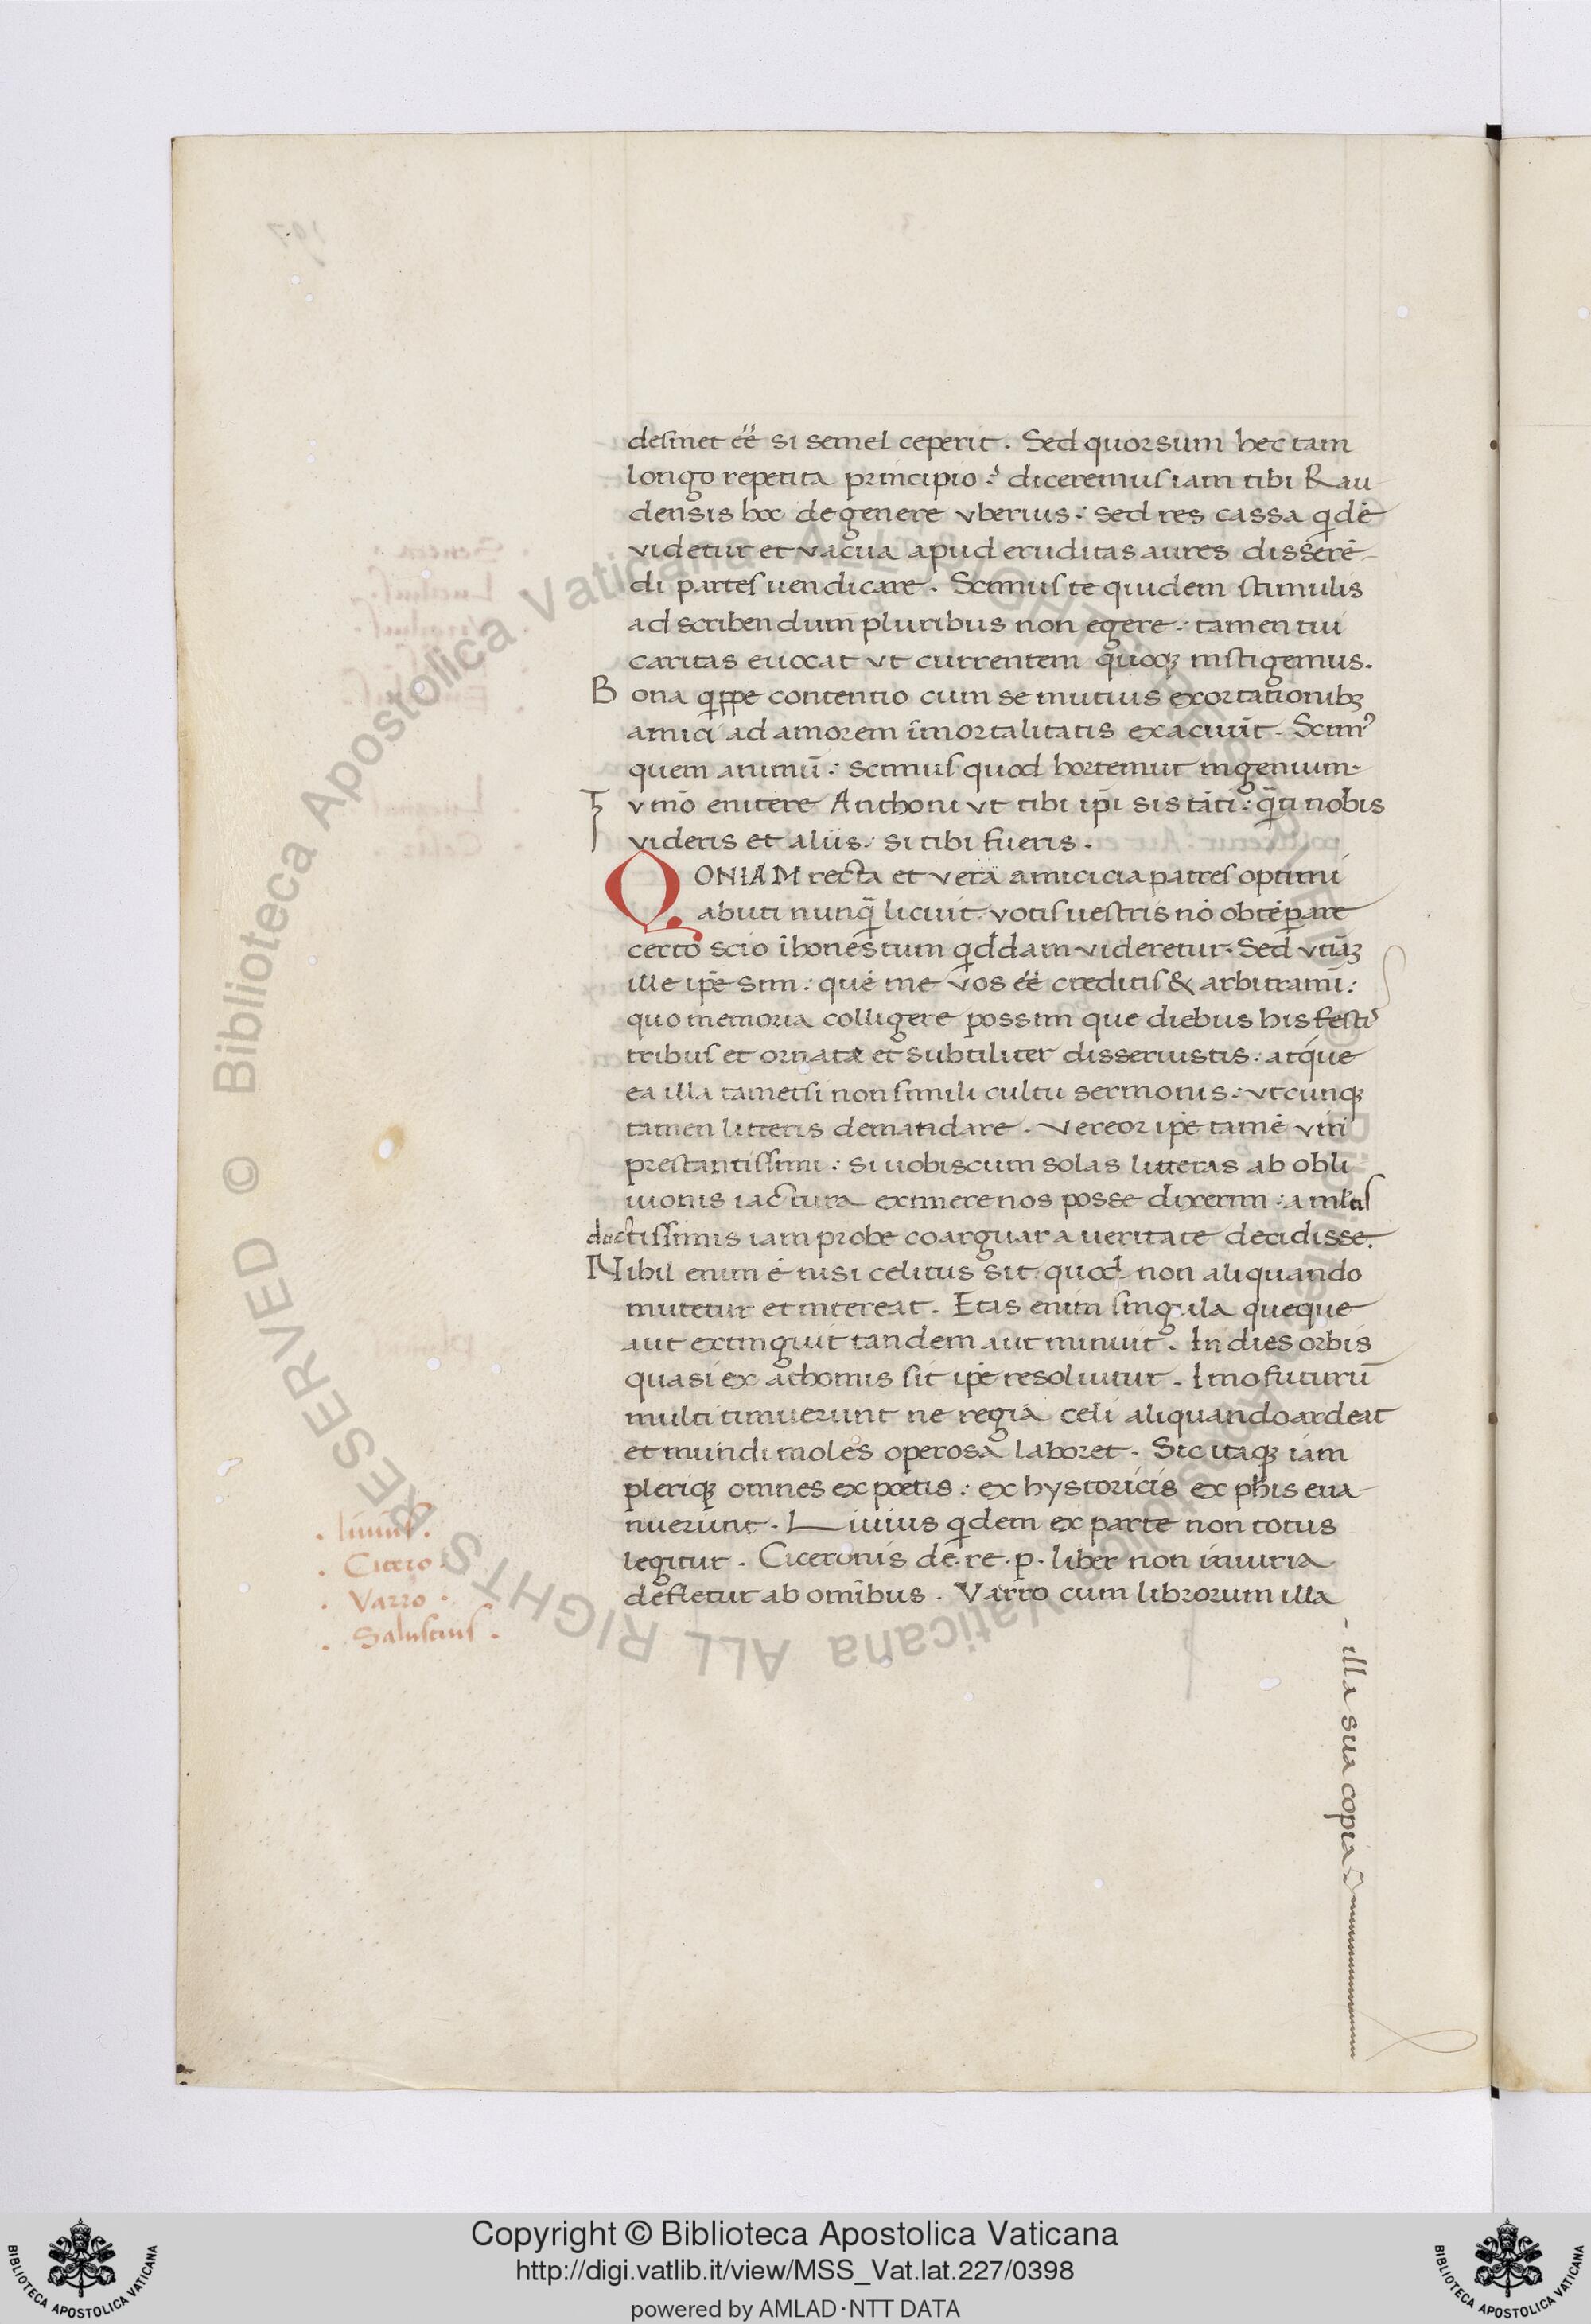 desinet eē si semel ceperit. Sed quorsum hec tam
longo repetita principio? diceremus iam tibi Rau
densis hoc de genere vberius: sed res cassa qidē
videtur et vacua apud eruditas aures disserē-
di partes uendicare. Scimus te quidem stimulis
ad scribendum pluribus non egere: tamen tui
caritas euocat vt currentem quoqꝫ instigemus.
Bona qippe contentio cum se mutuis exortationibꝫ
amici ad amorem īmortalitatis exacuūt. Scimꝰ
quem animū: scimus quod hortemur ingenium.
Tu mō enitere Anthoni vt tibi ip̄i sis tāti: qāti nobis
videris et aliis: si tibi fueris.
QONIAM recta et vera amicicia patres optimi
abuti nunqā licuit: votis uestris nō obtēꝑare
certo scio īhonestum qiddam videretur. Sed vtīaꝫ
ille ip̄e sim: quē me vos eē creditis & arbitramī:
quo memoria colligere possim que diebus his festꝭ
tribus et ornate et subtiliter disseruistis: atque
ea illa tametsi non simili cultu sermonis: vtcunqꝫ
tamen litteris demandare. Vereor ip̄e tamē viri
prestantissimi: si uobiscum solas litteras ab obli
uionis iactura eximere nos posse dixerim: a mltis
doctissimis iam probe coarguar a ueritate decidisse.
Nihil enim ē nisi celitus sit: quod non aliquando
mutetur et intereat. Etas enim singula queque
aut extinguit tandem aut minuit. In dies orbis
quasi ex athomis sit ip̄e resoluitur. Imo futurū
multi timuerunt ne regia celi aliquando ardeat
et mundi moles operosa laboret. Sic itaqꝫ iam
pleriqꝫ omnes ex poetis: ex hystoricis ex phis eua-
nuerunt. Liuius qidem ex parte non totus
legitur. Ciceronis de.re.p. liber non iniuria
defletur ab omībus. Varro cum librorum illa
- illa sua copia
. liuius.
. Cicero.
. Varro.
. Salustius.
© Biblioteca Apostolica Vaticana ALL RIGHTS RESERVED
Copyright © Biblioteca Apostolica Vaticana
http://digi.vatlib.it/view/MSS_Vat.lat.227/0398
powered by AMLAD·NTT DATA
BIBLIOTECA APOSTOLICA VATICANA
BIBLIOTECA APOSTOLICA VATICANA